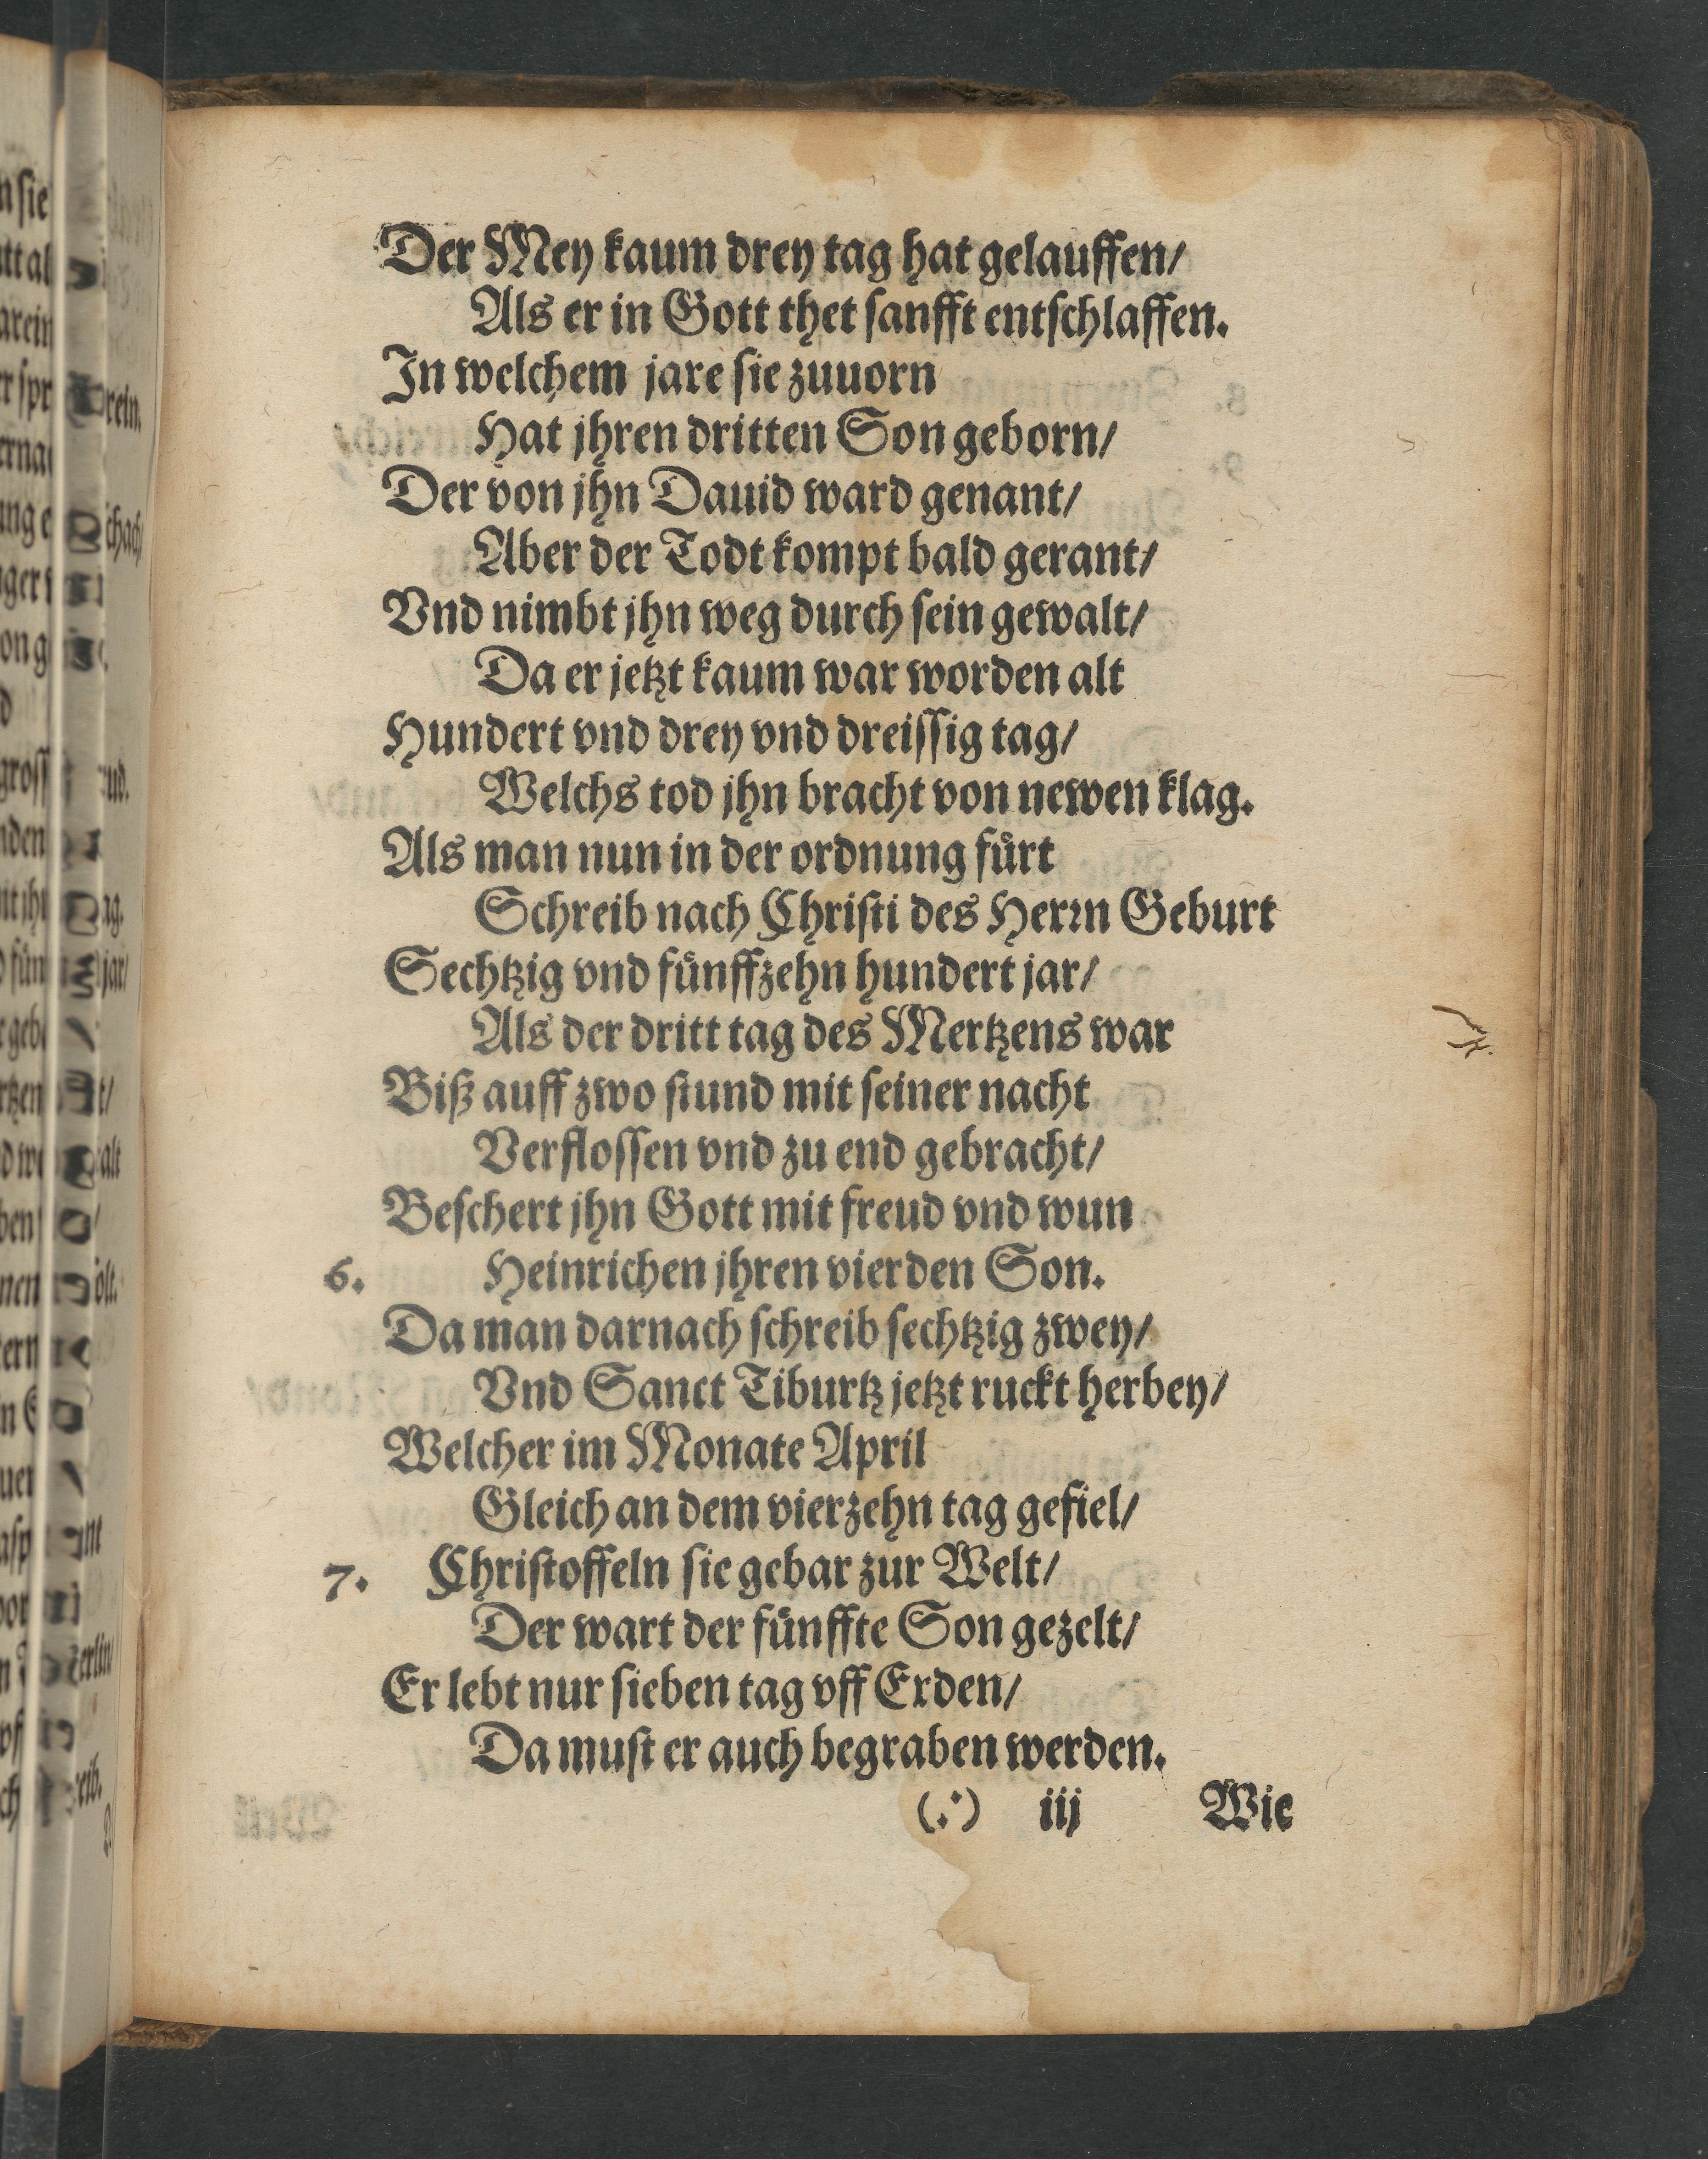 Der Mey kaum drey tag hat gelauffen/
Als er in Gott thet sanfft entschlaffen.
In welchem jare sie zuuorn
Hat jhren dritten Son geborn/
Der von jhn Dauid ward genant/
Aber der Todt kompt bald gerant/
Vnd nimbt jhn weg durch sein gewalt/
Da er jetzt kaum war worden alt
Hundert vnd drey vnd dreissig tag/
Welchs tod jhn bracht von newen klag.
Als man nun in der ordnung fuͤrt
Schreib nach Christi des Herrn Geburt
Sechtzig vnd fuͤnffzehn hundert jar/
Als der dritt tag des Mertzens war
Biß auff zwo stund mit seiner nacht
Verflossen vnd zu end gebracht/
Beschert jhn Gott mit freud vnd wun
6. Heinrichen jhren vierden Son.
Da man darnach schreib sechtzig zwey/
Vnd Sanct Tiburtz jetzt ruckt herbey/
Welcher im Monate April
Gleich an dem vierzehn tag gefiel/
7. Christoffeln sie gebar zur Welt/
Der wart der fuͤnffte Son gezelt/
Er lebt nur sieben tag vff Erden/
Da must er auch begraben werden.
(.·) iij Wie